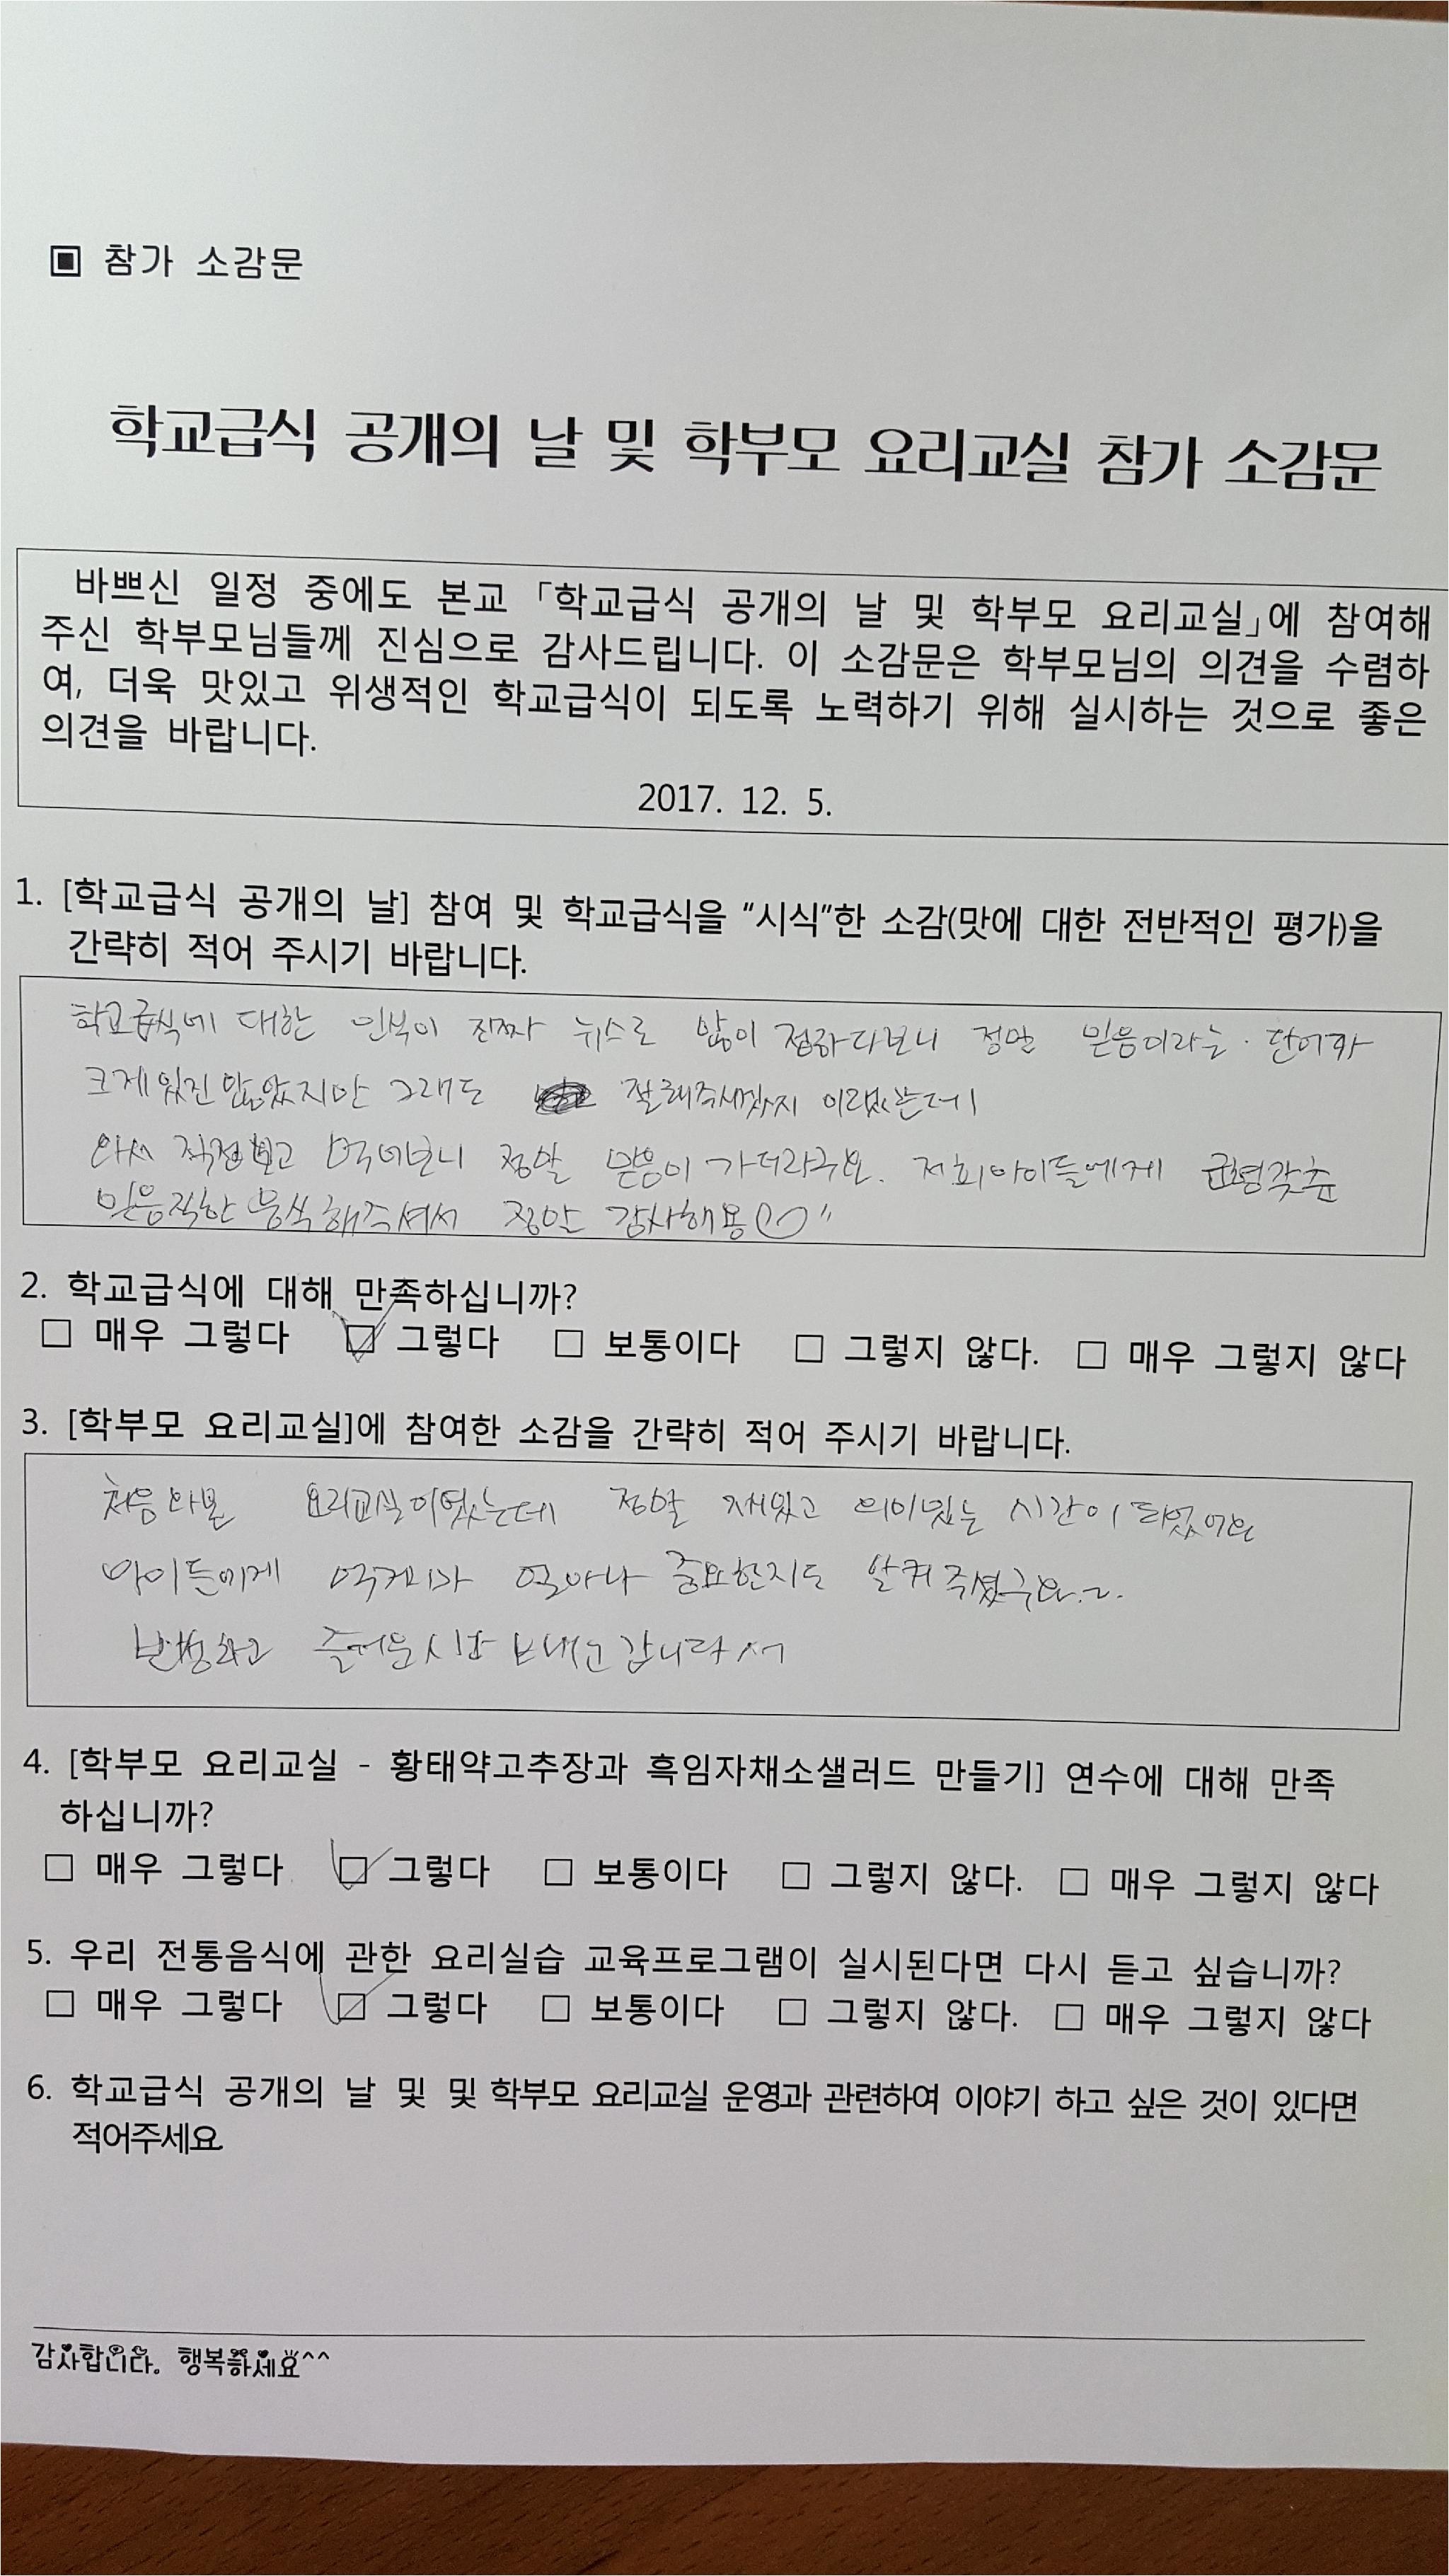 ▣ 참가 소감문
학교급식 공개의 날 및 학부모 요리교실 참가 소감문
바쁘신 일정 중에도 본교 「학교급식 공개의 날 및 학부모 요리교실」에 참여해
주신 학부모님들께 진심으로 감사드립니다. 이 소감문은 학부모님의 의견을 수렴하
여, 더욱 맛있고 위생적인 학교급식이 되도록 노력하기 위해 실시하는 것으로 좋은
의견을 바랍니다.
2017. 12. 5.
1. [학교급식 공개의 날] 참여 및 학교급식을 "시식"한 소감(맛에 대한 전반적인 평가)을
간략히 적어 주시기 바랍니다.
학교급식에 대한 인식이 진짜 뉴스로 많이 접하다보니 정말 믿음이라는 단어가
크게있진 않았지만 그래도 잘해주시겠지 이랬는데
와서 직접보고 먹어보니 정말 믿음이 가더라구요. 저희아이들에게 균형갖춘
믿음직한 음식해주셔서 정말 감사해용
2. 학교급식에 대해 만족하십니까?
□ 매우 그렇다 ☑ 그렇다 □ 보통이다 □ 그렇지 않다. □ 매우 그렇지 않다
3. [학부모 요리교실]에 참여한 소감을 간략히 적어 주시기 바랍니다.
처음와본 요리교실이었는데 정말 재밌고 의미있는 시간이 되었어요
아이들에게 먹거리가 얼마나 중요한지도 알켜주셨구요..
반성하고 즐거운시간 보내고갑니다
4. [학부모 요리교실 - 황태약고추장과 흑임자채소샐러드 만들기] 연수에 대해 만족
하십니까?
□ 매우 그렇다 ☑ 그렇다 □ 보통이다 □ 그렇지 않다. □ 매우 그렇지 않다
5. 우리 전통음식에 관한 요리실습 교육프로그램이 실시된다면 다시 듣고 싶습니까?
□ 매우 그렇다 ☑ 그렇다 □ 보통이다 □ 그렇지 않다. □ 매우 그렇지 않다
6. 학교급식 공개의 날 및 및 학부모 요리교실 운영과 관련하여 이야기 하고 싶은 것이 있다면
적어주세요.
감사합니다. 행복하세요^^